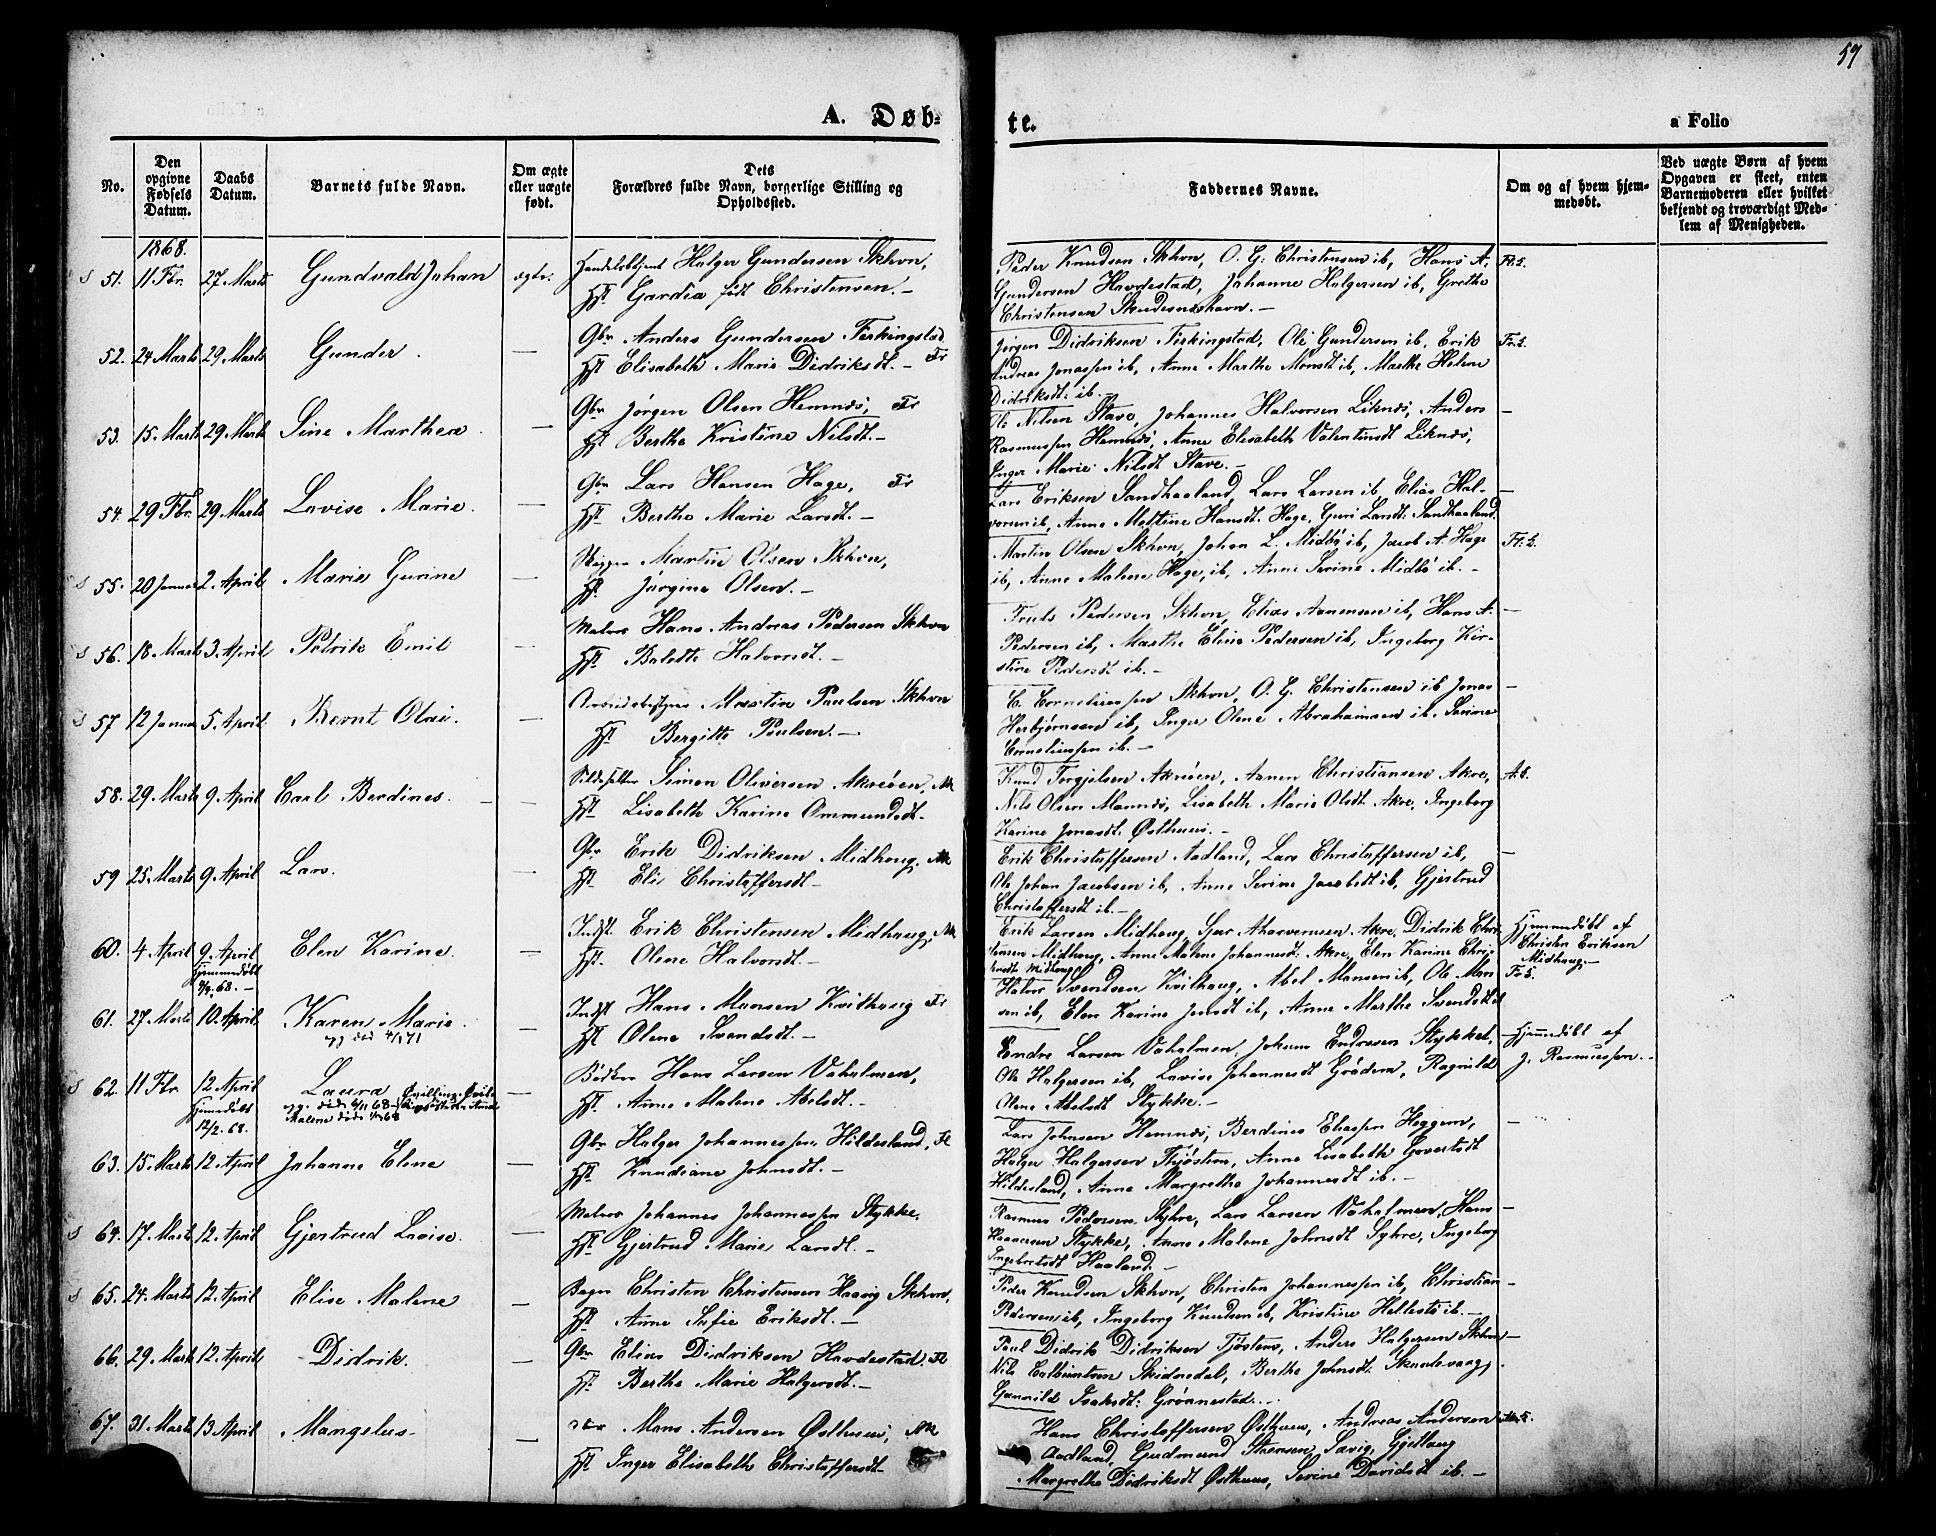 59
A. Døb-
te.
a Folio
No.
Den opgivne Fødsels Datum.
Daabs Datum.
Barnets fulde Navn.
Om ægte eller uægte født.
Dets Forældres fulde Navn, borgerlige Stilling og Opholdssted.
Faddernes Navne.
Om og af hvem hjemmedøbt.
Ved uægte Børn af hvem Opgaven er skeet, enten Barnemoderen eller hvilket bekjendt og troværdigt Medlem af Menigheden.
1868.
51. 11 Fbr. 27 Marts Gundvald Johan ægte. Holger Gundersen Skhvn,
Hst. Gardia født Christensen.-
Peder Knudsen Skhvn, O. G. Christensen ib, Hans A.
Gundersen Havdestad, Johanne Holgersen ib, Grethe
Christensen Skudesneshavn.-
52. 24 Marts 29 Marts Gunder. — Gbr Anders Gundersen Ferkingstad
Hst Elisabeth Marie Didriksdt.- Fr
Jørgen Didriksen Ferkingstad, Ole Gundersen ib, Erik
Andreas Jonassen ib, Anne Marthe Monsdt ib, Marthe Helene
Didriksdt: ib.
Fr.S.
53. 15 Marts 29 Marts Sine Marthea. — Gbr Jørgen Olsen Hemnes, Fr
Hst Berthe Kristine Nilsdt.-
Ole Nilsen Stave, Johannes Halvorsen Liknes, Anders
Rasmussen Hemnes, Anne Elisabeth Valentinsdt Liknes,
Inger Marie Nilsdt Stave.-
—
54. 29 Fbr. 29 Marts Lovise Marie. — Gbr Lars Hansen Hage, Fr
Hst Berthe Marie Larsdt.-
Lars Eriksen Sandhaaland, Lars Larsen ib, Elias Hal-
vorsen ib, Anne Mettine Hansdt. Hage, Guri Larsdt. Sandhaaland.
—
55. 20 Januar 2 April Marie Gurine — Martin Olsen Skhvn,
Hst. Jørgine Olsen.-
Martin Olsen Skhvn, Johan L. Midbø ib, Jacob A. Hage
ib, Anne Malene Hage, ib, Anne Serine Midbø ib.-
56. 18 Marts 3 April Petrik Emil — Hans Andreas Pedersen Skhvn
Hst. Bolette Halvorsdt.-
Pedersen Skhvn, Elias Aanensen ib, Hans A.
Pedersen ib, Marthe Eline Pedersen ib, Ingeborg Kir-
stine Pedersdt ib.-
—
57 12 Januar 5 April Bernt Olai. — Martin Paulsen Skhvn
Hst Bergitte Paulsen.-
C. Corneliussen Skhvn, O. G. Christensen ib Jonas
Herbjørnsen ib, Inger Olene Abrahamsen ib. Serine
Corneliussen ib.-
—
58. 29 Marts 9 April Carl Berdines. — Simon Oliversen Akreøen, Ak
Hst. Lisabeth Karine Ommundsdt-
Knud Torgjelsen Akreøen, Aanen Christiansen Akre,
Nils Olsen Mannes, Lisabeth Marie Olsdt. Akre, Ingeborg
Karine Jonasdt. Østhuus.-
A.S.
59 25. Marts 9 April Lars. — Gbr Erik Didriksen Midhaug, Ak
Hst. Eli Christoffersdt-
Erik Christoffersen Aadland, Lars Christoffersen ib,
Ole Johan Jacobsen ib, Anne Serine Jacobsdt ib, Gjertrud
Christoffersdt ib.-
—
60. 4 April 9 April Elen Karine. — Indst. Erik Christensen Midhaug, Ak
Hjemmedøbt
Hst. Olene Halvorsdt.-
Erik Larsen Midhaug, Sjur Ahasverusen Akre, Didrik Chri-
stensen Midhaug, Anne Malene Johannesdt. Akre, Elen Karine Chri-
stensdt Midhaug
Hjemmedøbt af
Christen Eriksen
Midhaug.-
61. 27 Marts 10 April Karen Marie. — Indst Hans Monsen Kvithaug Fr
Hst Olene Svendsdt.-
Halvor Svendsen Kvilhaug, Abel Monsen ib, Ole Mon-
sen ib, Elen Karine Jensdt ib, Anne Marthe Svendsdt ib
Fr.S.
62. 11 Fbr. 12 April Laura — Bødker Hans Larsen Vaholmen,
Hjemmedøbt
12/2. 68.
Hst. Anne Malene Abelsdt.-
Endre Larsen Vaholmen, Johan Endresen Stykket,
Ole Holgersen ib, Lovise Johannesdt Grødem, Ragnild
Olene Abelsdt Stykke.-
Hjemmedøbt af
J. Rasmussen.-
63. 15 Marts 12 April Johanne Elene — Gbr Holger Johannessen Hildesland,
Hst. Knudiane Johnsdt.-
Lars Johnsen Hemnes, Berdines Eliassen Heggem,
Holger Holgersen Thjøstem, Anne Lisabeth Govertsdt
Hildesland, Anne Margrethe Johannesdt ib.-
—
64. 17 Marts 12 April Gjertrud Lovise. — Johannes Johannessen Stykke.
Hst. Gjertrud Marie Larsdt.-
Rasmus Pedersen Syhre, Lars Larsen Vaholmen, Hans
Stykke, Anne Malene Johnsdt Syhre, Ingeborg
Haaland.-
—
65. 24. Marts 12. April Elise Malene — Christen Christensen Haavig Skhvn,
Hst. Anne Sofie Eriksdt.-
Peder Knudsen Skhvn, Christen Johannessen ib, Christian
Pedersen ib, Ingeborg Knudsen ib, Kristine Hellestø ib.-
—
66. 29. Marts 12 April Didrik. — Gbr. Elias Didriksen Havdestad,
Hst. Berthe Marie Holgersdt.-
Poul Didrik Didriksen Tjøstem, Anders Holgersen Skhvn
Nils Skidnedal, Berthe Johnsdt. Skudevaag,
Gunnild Isaksdt: Grønnestad.-
—
67. 31. Marts 13 April Mangelus- — Mons Andersen Østhuus, Ak
Hst. Inger Elisabeth Christoffersdt-
Hans Christoffersen Østhuus, Andreas Andersen
Aadland, Gudmund Sævig,
Margrethe Didriksdt Østhuus, Serine Davidsdt ib.-